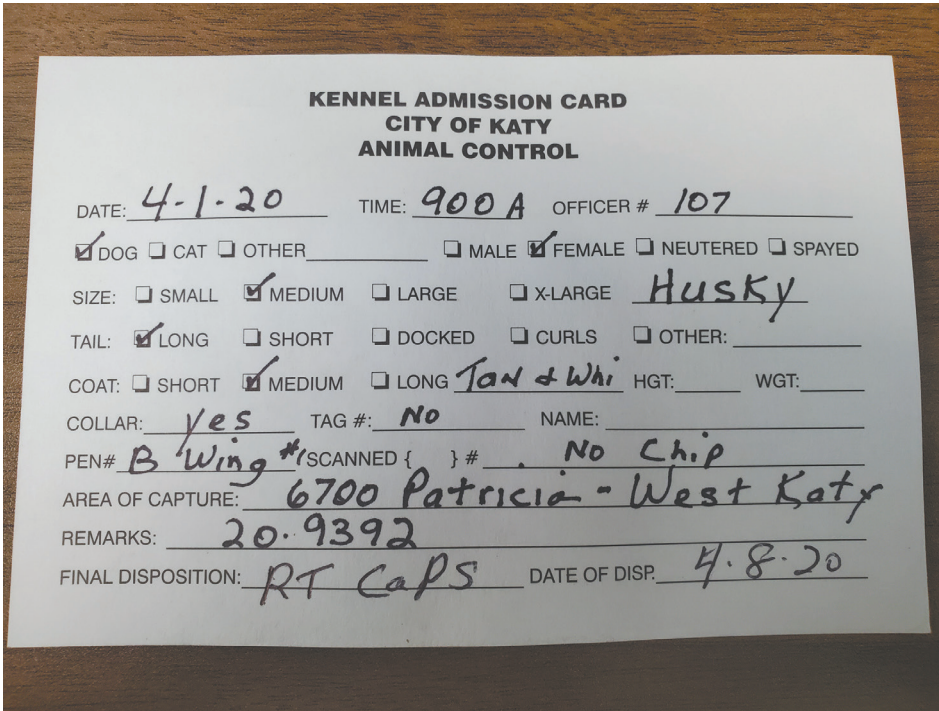 KENNEL ADMISSION CARD
CITY OF KATY
ANIMAL CONTROL
DATE: 4-1-20 TIME: 900 A OFFICER # 107
DOG CAT OTHER MALE FEMALE NEUTERED SPAYED
SIZE: SMALL MEDIUM LARGE X-LARGE Husky
TAIL: LONG SHORT DOCKED CURLS OTHER:
COAT: SHORT MEDIUM LONG Tan & Whi HGT: WGT:
COLLAR: yes TAG #: No NAME:
PEN# B Wing #1 SCANNED { } # No Chip
AREA OF CAPTURE: 6700 Patricia - West Katy
REMARKS: 20-9392
FINAL DISPOSITION: RT CaPS DATE OF DISP. 4-8-20